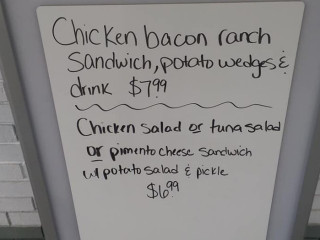 Chicken bacon ranch
Sandwich, potato wedges &
drink $7.99
Chicken salad or tuna salad
or pimento cheese sandwich
w/ potato salad & pickle
$6.99